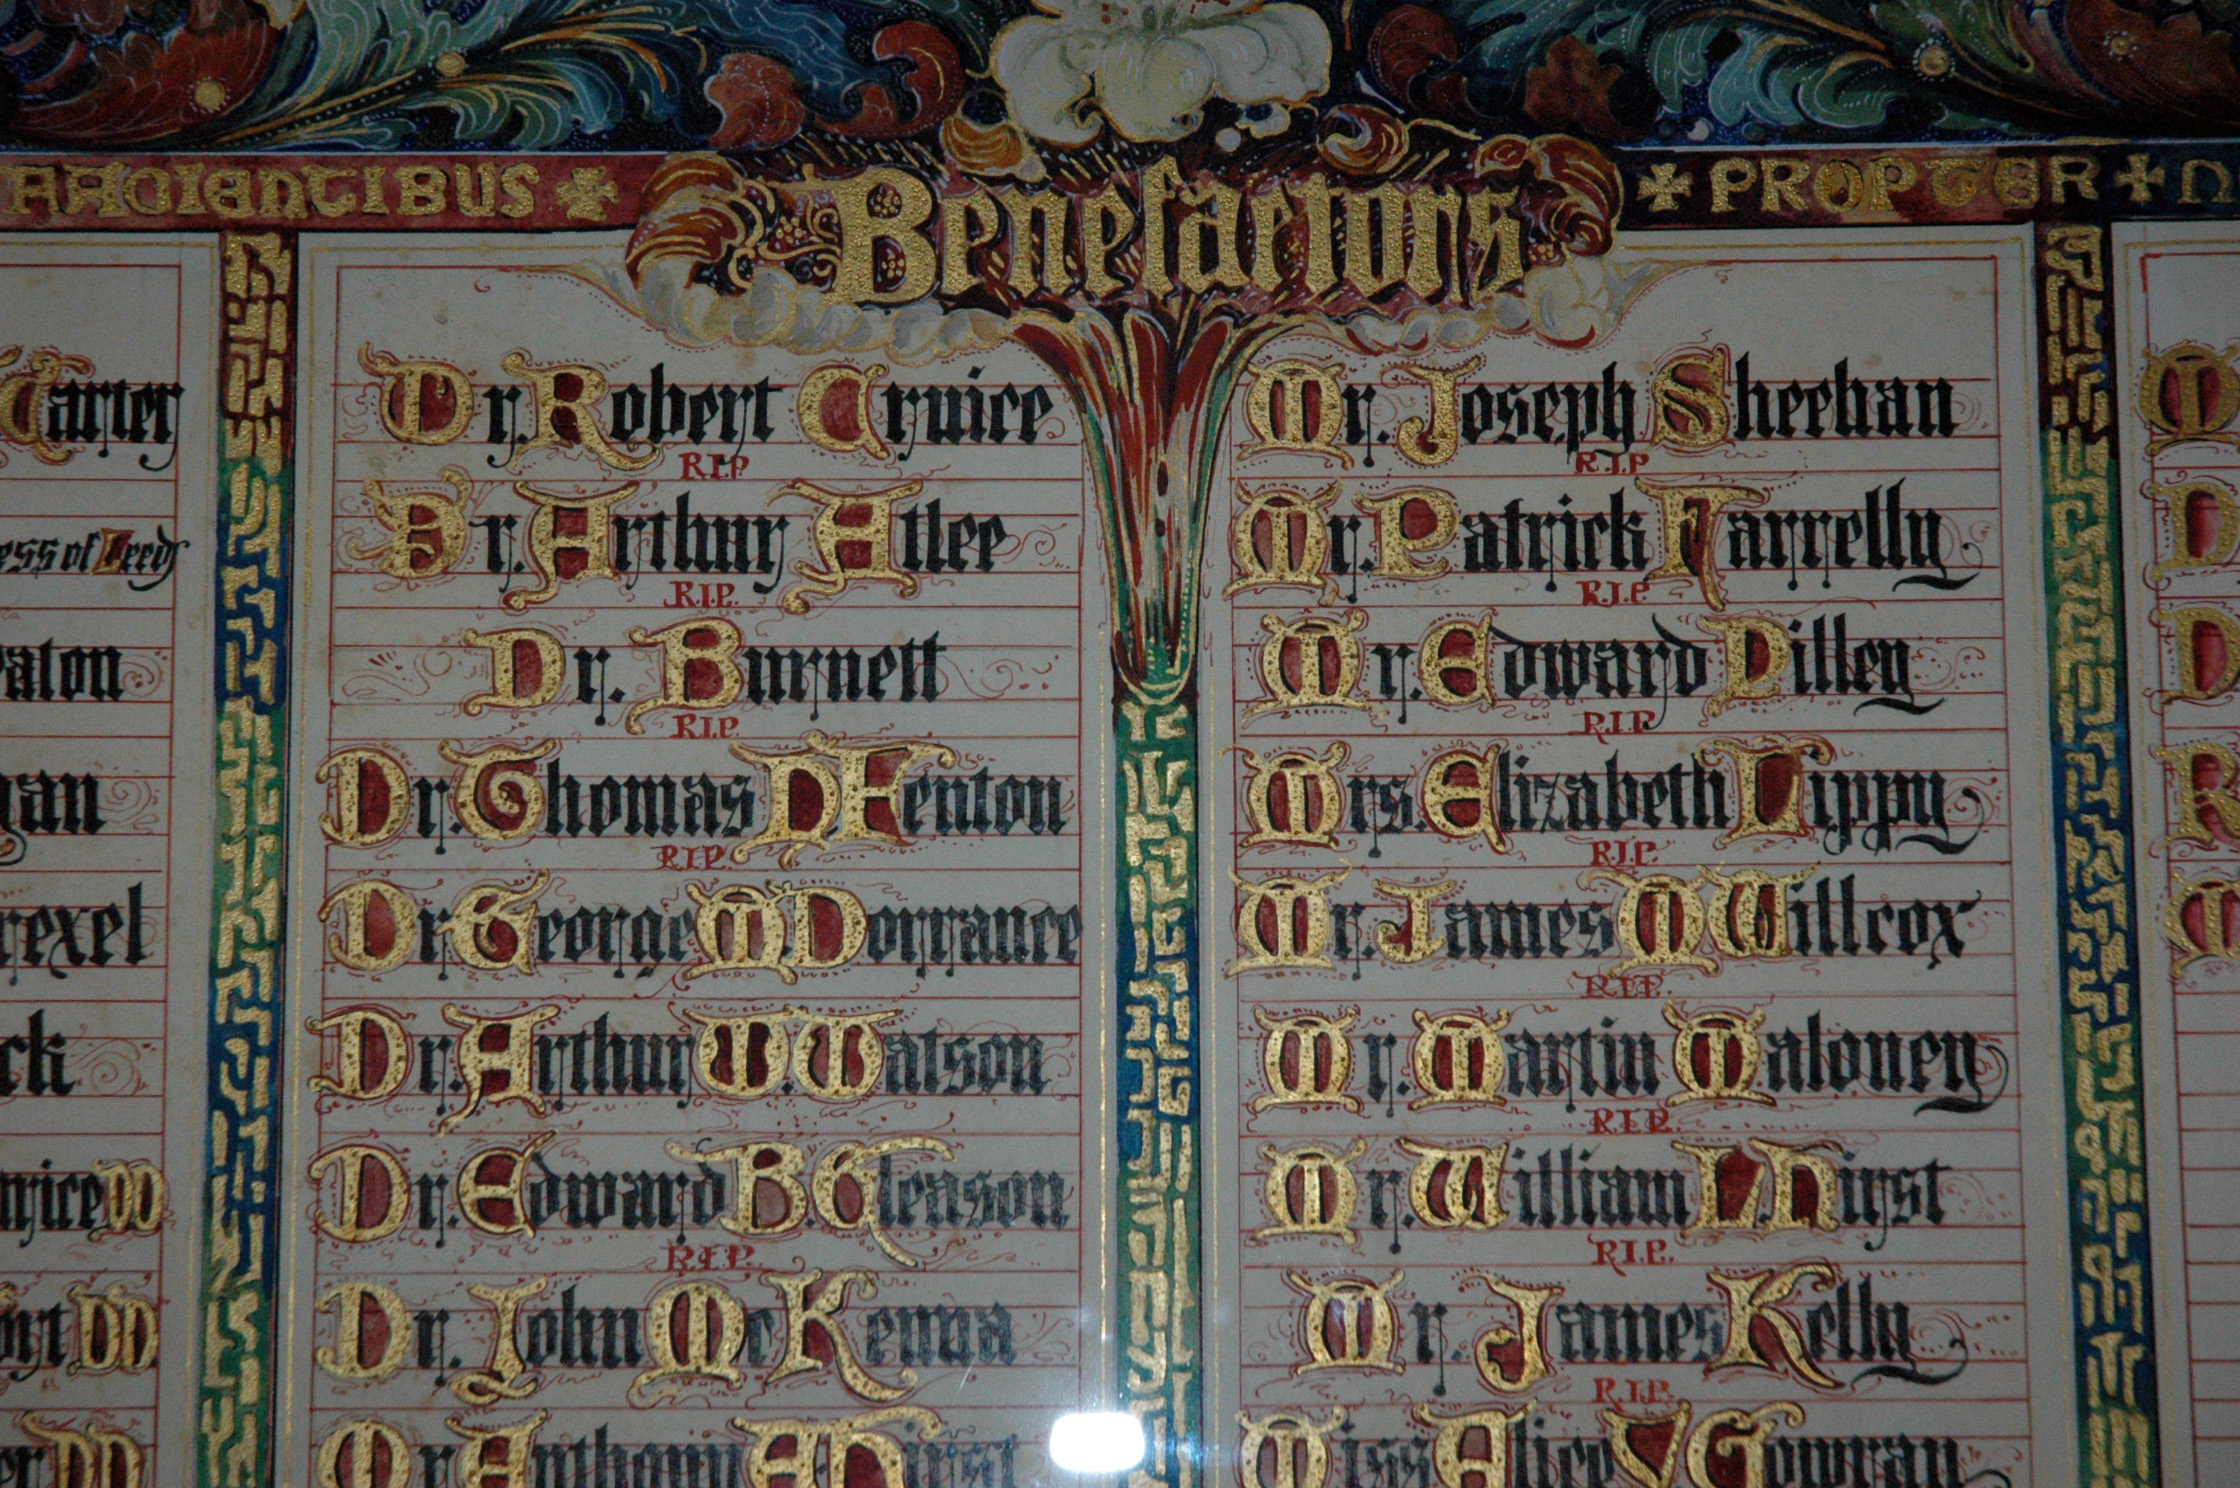 ✠ Benefactors ✠ PROPTER ✠
Carter
ess of Leeds
aton
gan
rexel
ck
DD
DD
DD
Dr. Robert Cruice
R.I.P
Dr. Arthur Atlee
R.I.P.
Dr. Burnett
R.I.P.
Dr. Thomas D. Fenton
R.I.P.
Dr. George M. Dorrance
Dr. Arthur W. Watson
Dr. Edward B. Gleason
R.I.P.
Dr. John McKenna
Mr. Anthony A. Hirst
Mr. Joseph Sheehan
R.I.P
Mr. Patrick Farrelly
R.I.P.
Mr. Edward Pilley
R.I.P.
Mrs. Elizabeth Lippy
R.I.P.
Mr. James M Willcox
R.I.P.
Mr. Martin Maloney
R.I.P.
Mr. William L. Hirst
R.I.P.
Mr. James Kelly
R.I.P.
Miss Alice V Gowran